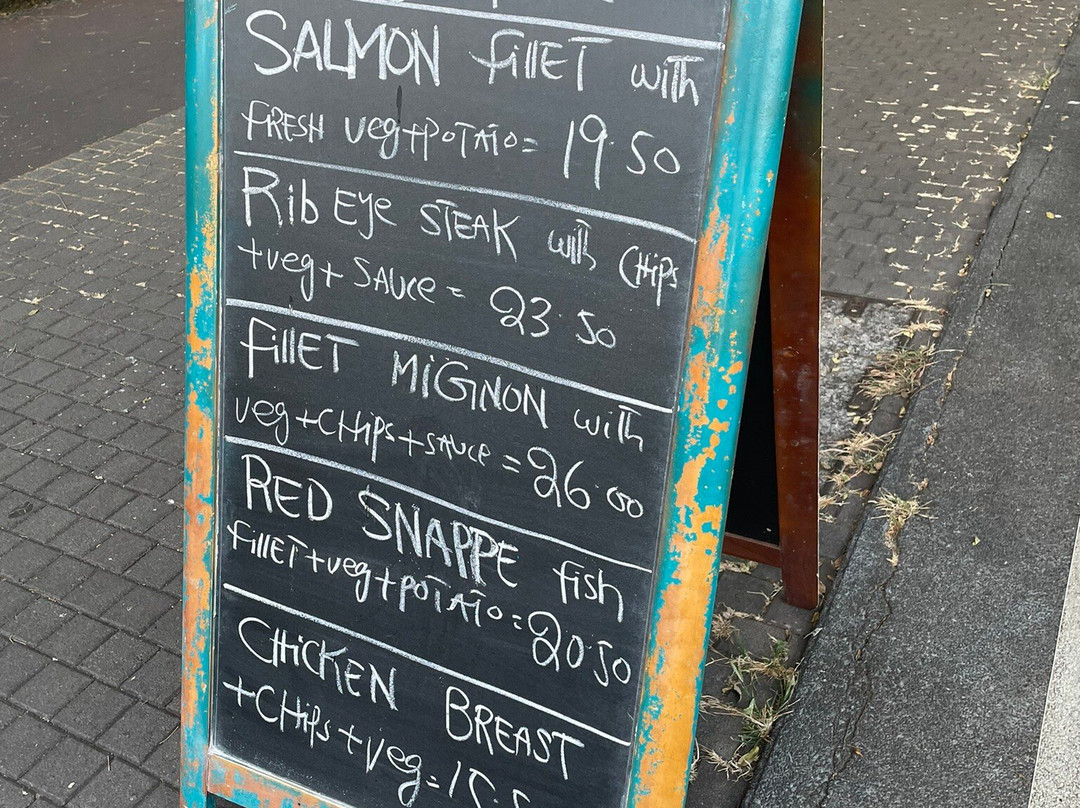 SALMON fillET with
FRESH veg+POTATO= 19.50
Rib EYe STEAK with CHiPs
+veg+ SAUce = 23.50
fillET MiGNON with
veg+CHiPs+SAUCe = 26.00
RED SNAPPE fish
fillET+veg+POTATO = 20.50
CHiCKEN BREAST
+CHiPs+veg=